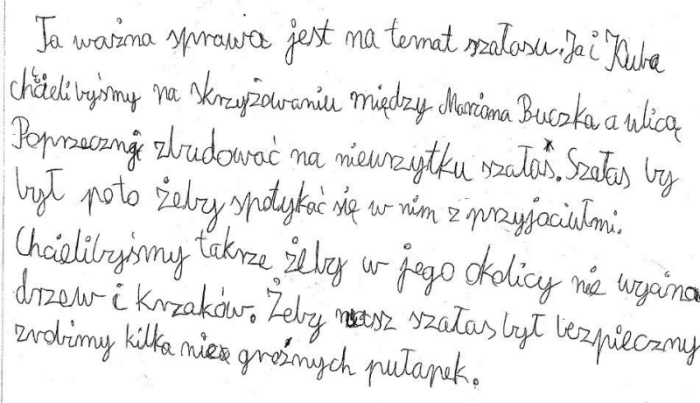 Ta ważna sprawa jest na temat szałasu. Ja i Kuba
chcielibyśmy na skrzyżowaniu między Mariana Buczka a ulicą
Poprzeczną zbudować na nieurzytku szałas*. Szałas by
był poto żeby spotykać się w nim z przyjaciułmi.
Chcielibyśmy takrze żeby w jego okolicy nie wycina
drzew i krzaków. Żeby nasz szałas był bezpieczny
zrobimy kilka nie groźnych pułapek.